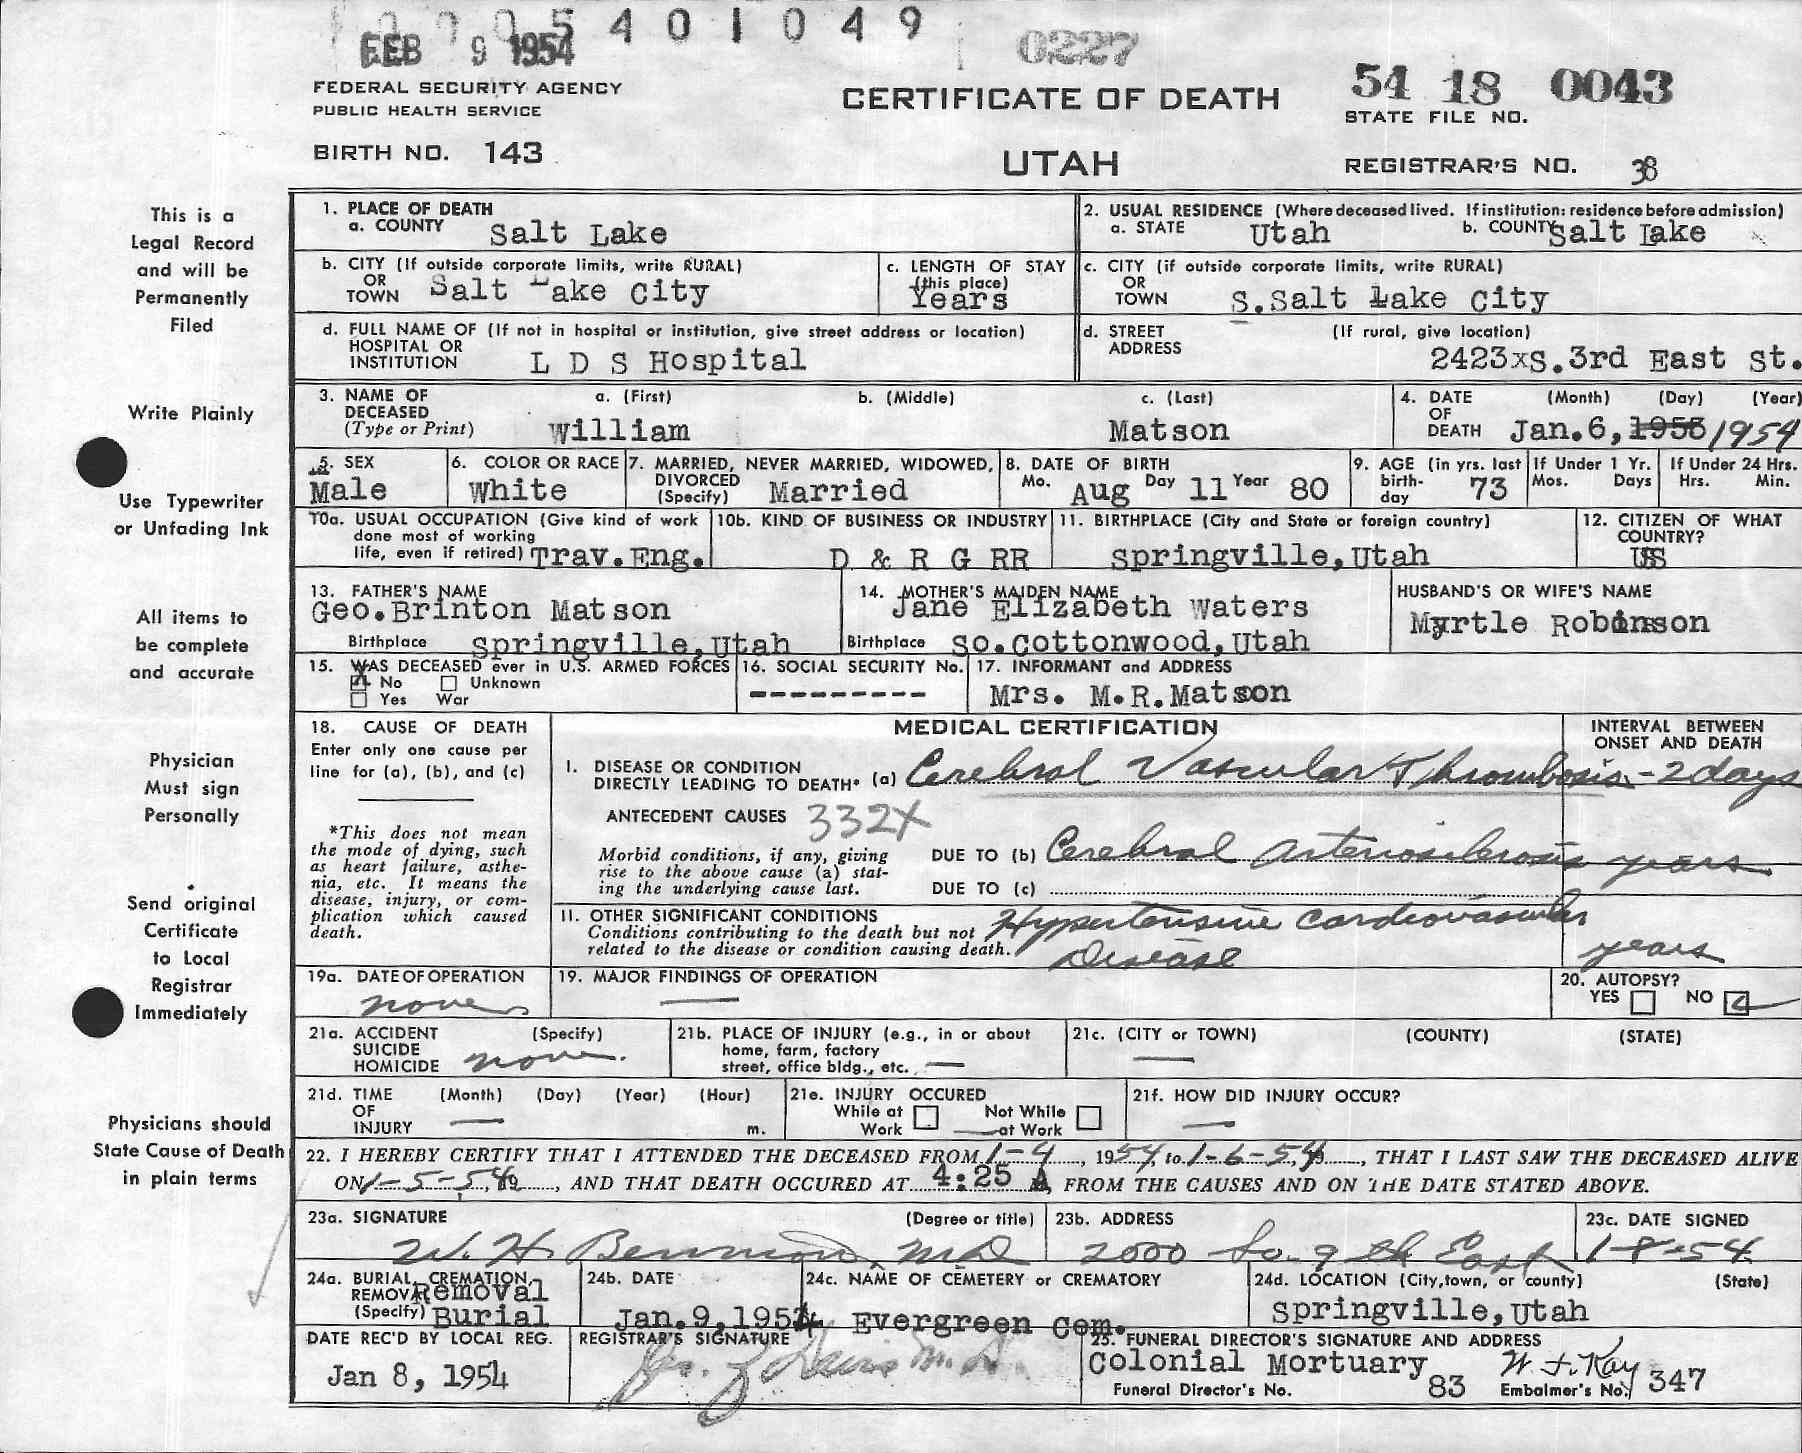 5 4 0 1 0 4 9
FEB 9 1954
0227
54 18 0043
FEDERAL SECURITY AGENCY
PUBLIC HEALTH SERVICE
CERTIFICATE OF DEATH
STATE FILE NO.
BIRTH NO. 143
UTAH
REGISTRAR'S NO. 38
This is a
Legal Record
and will be
Permanently
Filed
Write Plainly
Use Typewriter
or Unfading Ink
All items to
be complete
and accurate
Physician
Must sign
Personally
Send original
Certificate
to Local
Registrar
Immediately
Physicians should
State Cause of Death
in plain terms
1. PLACE OF DEATH
a. COUNTY Salt Lake
2. USUAL RESIDENCE (Where deceased lived. If institution: residence before admission)
a. STATE Utah b. COUNTY Salt Lake
b. CITY (If outside corporate limits, write RURAL)
OR
TOWN Salt Lake City
c. LENGTH OF STAY
(this place)
Years
c. CITY (if outside corporate limits, write RURAL)
OR
TOWN S.Salt Lake City
d. FULL NAME OF (If not in hospital or institution, give street address or location)
HOSPITAL OR
INSTITUTION L D S Hospital
d. STREET (If rural, give location)
ADDRESS
2423xS.3rd East St.
3. NAME OF
DECEASED
(Type or Print)
a. (First) b. (Middle) c. (Last)
William Matson
4. DATE (Month) (Day) (Year)
OF
DEATH Jan.6, 1953 1954
5. SEX
Male
6. COLOR OR RACE
White
7. MARRIED, NEVER MARRIED, WIDOWED,
DIVORCED
(Specify) Married
8. DATE OF BIRTH
Mo. Aug Day 11 Year 80
9. AGE (in yrs. last
birth-
day 73
If Under 1 Yr.
Mos. Days
If Under 24 Hrs.
Hrs. Min.
10a. USUAL OCCUPATION (Give kind of work
done most of working
life, even if retired) Trav.Eng.
10b. KIND OF BUSINESS OR INDUSTRY
D & R G RR
11. BIRTHPLACE (City and State or foreign country)
Springville,Utah
12. CITIZEN OF WHAT
COUNTRY?
US
13. FATHER'S NAME
Geo.Brinton Matson
Birthplace Springville,Utah
14. MOTHER'S MAIDEN NAME
Jane Elizabeth Waters
Birthplace So.Cottonwood,Utah
HUSBAND'S OR WIFE'S NAME
Myrtle Robinson
15. WAS DECEASED ever in U.S. ARMED FORCES
X No Unknown
Yes War
16. SOCIAL SECURITY No.
---------
17. INFORMANT and ADDRESS
Mrs. M.R.Matson
18. CAUSE OF DEATH
Enter only one cause per
line for (a), (b), and (c)
*This does not mean
the mode of dying, such
as heart failure, asthe-
nia, etc. It means the
disease, injury, or com-
plication which caused
death.
MEDICAL CERTIFICATION
INTERVAL BETWEEN
ONSET AND DEATH
I. DISEASE OR CONDITION
DIRECTLY LEADING TO DEATH* (a) Cerebral Vascular Thrombosis - 2 days
ANTECEDENT CAUSES 332X
Morbid conditions, if any, giving
rise to the above cause (a) stat-
ing the underlying cause last.
DUE TO (b) Cerebral arteriosclerosis years
DUE TO (c)
II. OTHER SIGNIFICANT CONDITIONS
Conditions contributing to the death but not
related to the disease or condition causing death.
Hypertensive cardiovascular
Disease years
19a. DATE OF OPERATION
none
19. MAJOR FINDINGS OF OPERATION
20. AUTOPSY?
YES NO
21a. ACCIDENT (Specify)
SUICIDE
HOMICIDE none.
21b. PLACE OF INJURY (e.g., in or about
home, farm, factory
street, office bldg., etc.
21c. (CITY or TOWN) (COUNTY) (STATE)
21d. TIME (Month) (Day) (Year) (Hour)
OF
INJURY m.
21e. INJURY OCCURED
While at Not While
Work at Work
21f. HOW DID INJURY OCCUR?
22. I HEREBY CERTIFY THAT I ATTENDED THE DECEASED FROM 1-4, 1954, to 1-6-54, 19, THAT I LAST SAW THE DECEASED ALIVE
ON 1-5-54, 19, AND THAT DEATH OCCURED AT 4:25 A, FROM THE CAUSES AND ON THE DATE STATED ABOVE.
23a. SIGNATURE (Degree or title)
W. H. MD
23b. ADDRESS
2000 So. 9th East
23c. DATE SIGNED
1-8-54
24a. BURIAL, CREMATION,
REMOVAL Removal
(Specify) Burial
24b. DATE
Jan.9,1954
24c. NAME OF CEMETERY or CREMATORY
Evergreen Cem.
24d. LOCATION (City, town, or county) (State)
Springville,Utah
DATE REC'D BY LOCAL REG.
Jan 8, 1954
REGISTRAR'S SIGNATURE
Davis M.D.
25. FUNERAL DIRECTOR'S SIGNATURE AND ADDRESS
Colonial Mortuary W. J. Kay
Funeral Director's No. 83 Embalmer's No. 347